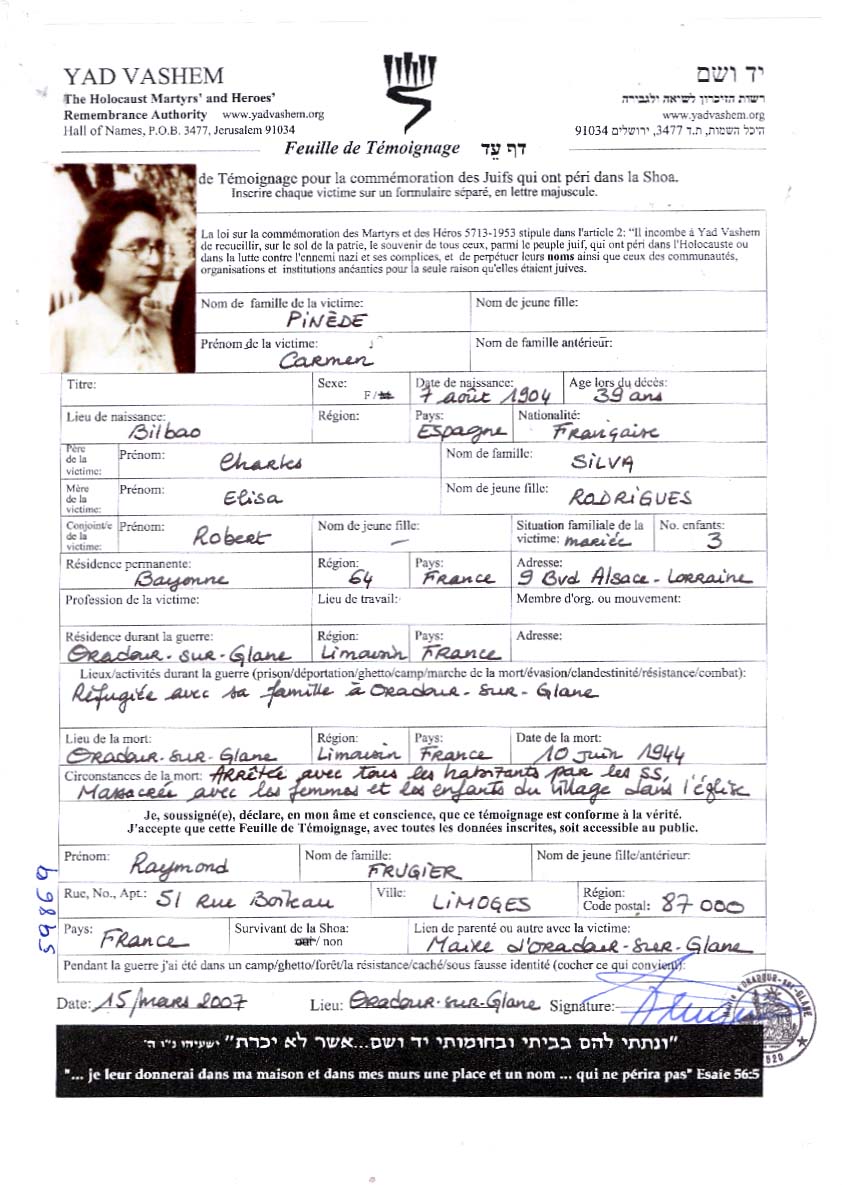 YAD VASHEM
The Holocaust Martyrs' and Heroes'
Remembrance Authority www.yadvashem.org
Hall of Names, P.O.B. 3477, Jerusalem 91034
יד ושם
רשות הזיכרון לשואה ולגבורה
www.yadvashem.org
היכל השמות, ת.ד 3477, ירושלים 91034
Feuille de Témoignage דף עד
de Témoignage pour la commémoration des Juifs qui ont péri dans la Shoa.
Inscrire chaque victime sur un formulaire séparé, en lettre majuscule.
La loi sur la commémoration des Martyrs et des Héros 5713-1953 stipule dans l'article 2: "Il incombe à Yad Vashem
de recueillir, sur le sol de la patrie, le souvenir de tous ceux, parmi le peuple juif, qui ont péri dans l'Holocauste ou
dans la lutte contre l'ennemi nazi et ses complices, et de perpétuer leurs noms ainsi que ceux des communautés,
organisations et institutions anéantics pour la seule raison qu'elles étaient juives.
Nom de famille de la victime: Nom de jeune fille:
PINÈDE
Prénom de la victime: Nom de famille antérieur:
Carmen
Titre: Sexe: Date de naissance: Age lors du décès:
F/ 7 août 1904 39 ans
Lieu de naissance: Région: Pays: Nationalité:
Bilbao Espagne Française
Père de la victime: Prénom: Charles Nom de famille: SILVA
Mère de la victime: Prénom: Elisa Nom de jeune fille: RODRIGUES
Conjoint/e de la victime: Prénom: Robert Nom de jeune fille: — Situation familiale de la victime: mariée No. enfants: 3
Résidence permanente: Région: Pays: Adresse:
Bayonne 64 France 9 Bvd Alsace-Lorraine
Profession de la victime: Lieu de travail: Membre d'org. ou mouvement:
Résidence durant la guerre: Région: Pays: Adresse:
Oradour-sur-Glane Limousin France
Lieux/activités durant la guerre (prison/déportation/ghetto/camp/marche de la mort/évasion/clandestinité/résistance/combat):
Réfugiée avec sa famille à Oradour-sur-Glane
Lieu de la mort: Région: Pays: Date de la mort:
Oradour-sur-Glane Limousin France 10 juin 1944
Circonstances de la mort: Arrêtée avec tous les habitants par les SS,
Massacrée avec les femmes et les enfants du village dans l'église
Je, soussigné(e), déclare, en mon âme et conscience, que ce témoignage est conforme à la vérité.
J'accepte que cette Feuille de Témoignage, avec toutes les données inscrites, soit accessible au public.
Prénom: Raymond Nom de famille: FRUGIER Nom de jeune fille/antérieur:
Rue, No., Apt.: 51 Rue Boileau Ville: LIMOGES Région: Code postal: 87000
Pays: France Survivant de la Shoa: oui/ non Lien de parenté ou autre avec la victime: Maire d'Oradour-sur-Glane
Pendant la guerre j'ai été dans un camp/ghetto/forêt/la résistance/caché/sous fausse identité (cocher ce qui convient):
Date: 15/mars 2007 Lieu: Oradour-sur-Glane Signature:
59869
"ונתתי להם בביתי ובחומותי יד ושם...אשר לא יכרת" ישעיהו נ"ו ה'
"... je leur donnerai dans ma maison et dans mes murs une place et un nom ... qui ne périra pas" Esaïe 56:5